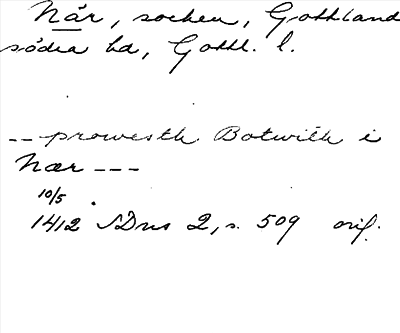 När, socken, Gottland
södra hd, Gottl. l.
-- prowesth Botwith i
Nær ---
10/5
1412 SDns 2, s. 509 orig.